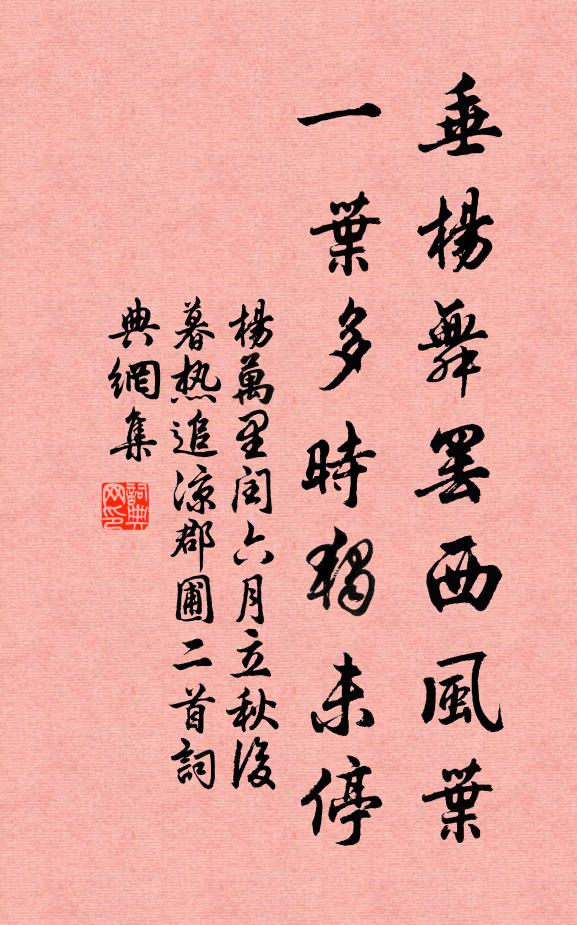 垂楊舞罢西風葉
一葉多時獨未停
楊萬里閏六月立秋後
暮热追涼郡圃二首詞
典網集
詞典
网印